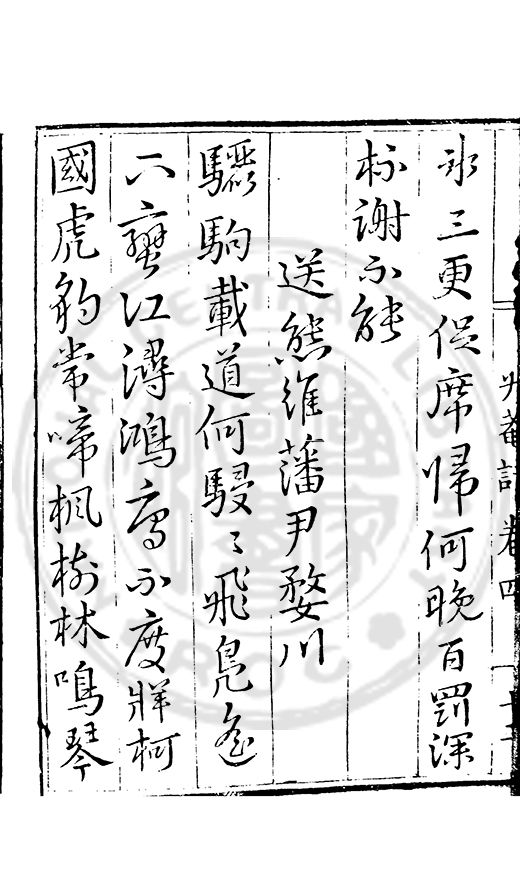 菴詩 卷四
冰三更促席歸何晚百罰深
杯謝不能
送熊維藩尹婺川
驪駒載道何駸〻飛鳧遙
下蠻江潯鴻雁不度牂柯
國虎豹常啼楓樹林鳴琴